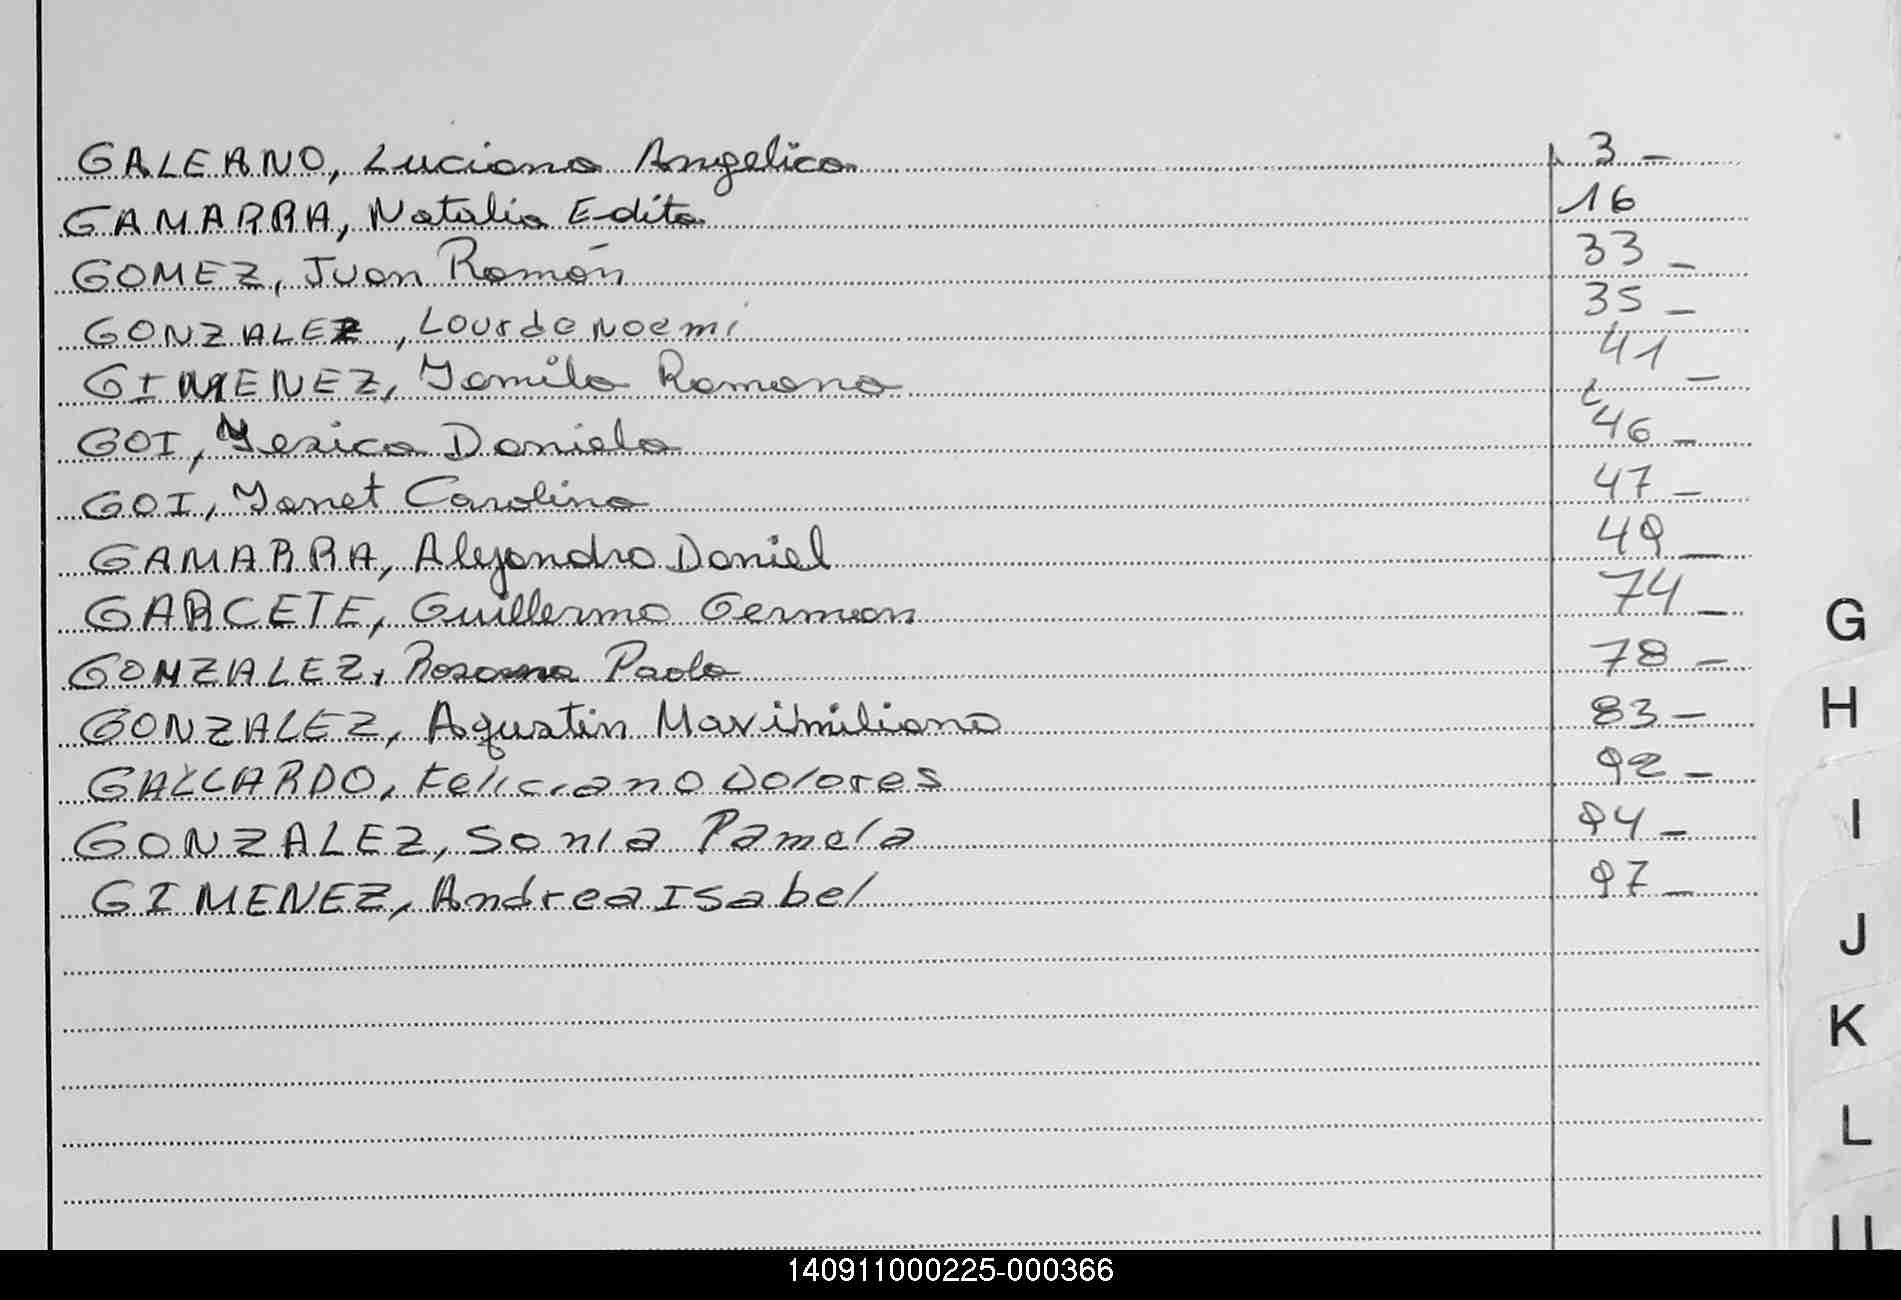 GALEANO, Luciana Angelica 3 -
GAMARRA, Natalia Edita 16
GOMEZ, Juan Ramón 33 -
GONZALEZ, Lourde Noemi 35 -
GIMENEZ, Yamila Romana 41 -
GOI, Yesica Daniela 46 -
GOI, Yanet Carolina 47 -
GAMARRA, Alejandro Daniel 49 -
GARCETE, Guillermo German 74 -
GONZALEZ, Rosana Paola 78 -
GONZALEZ, Agustin Maximiliano 83 -
GALLARDO, Feliciano Dolores 92 -
GONZALEZ, Sonia Pamela 94 -
GIMENEZ, Andrea Isabel 97 -
G
H
I
J
K
L
140911000225-000366